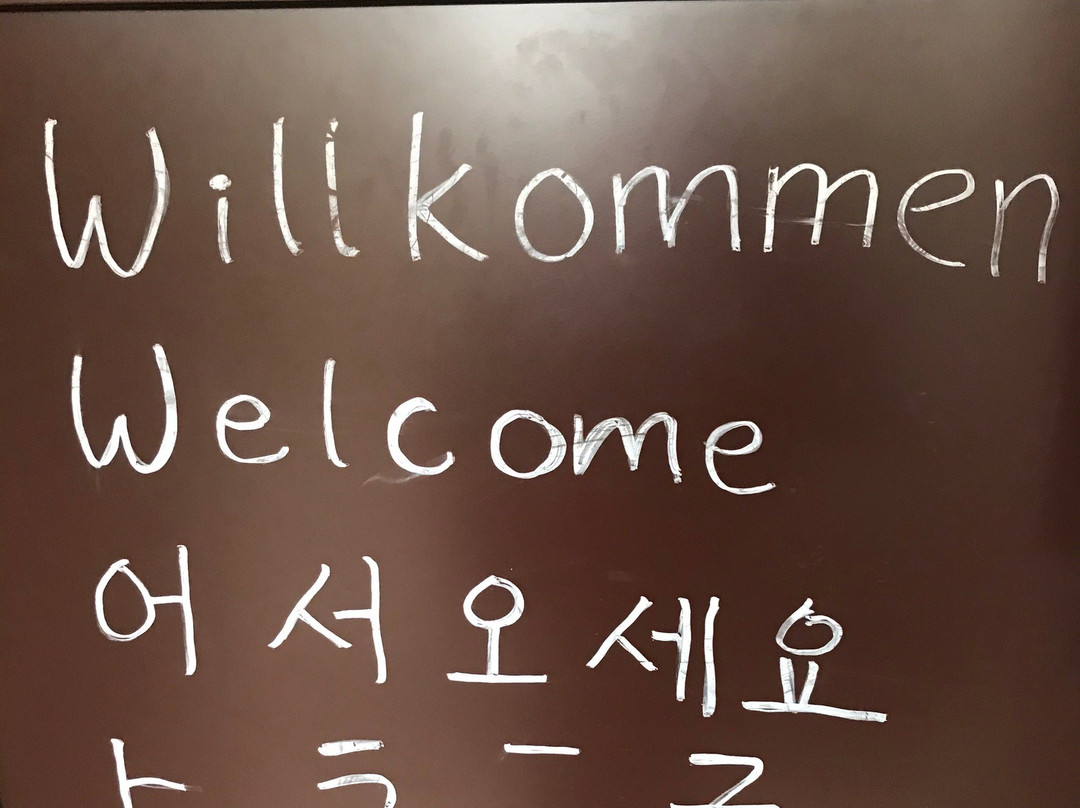 Willkommen
Welcome
어서오세요